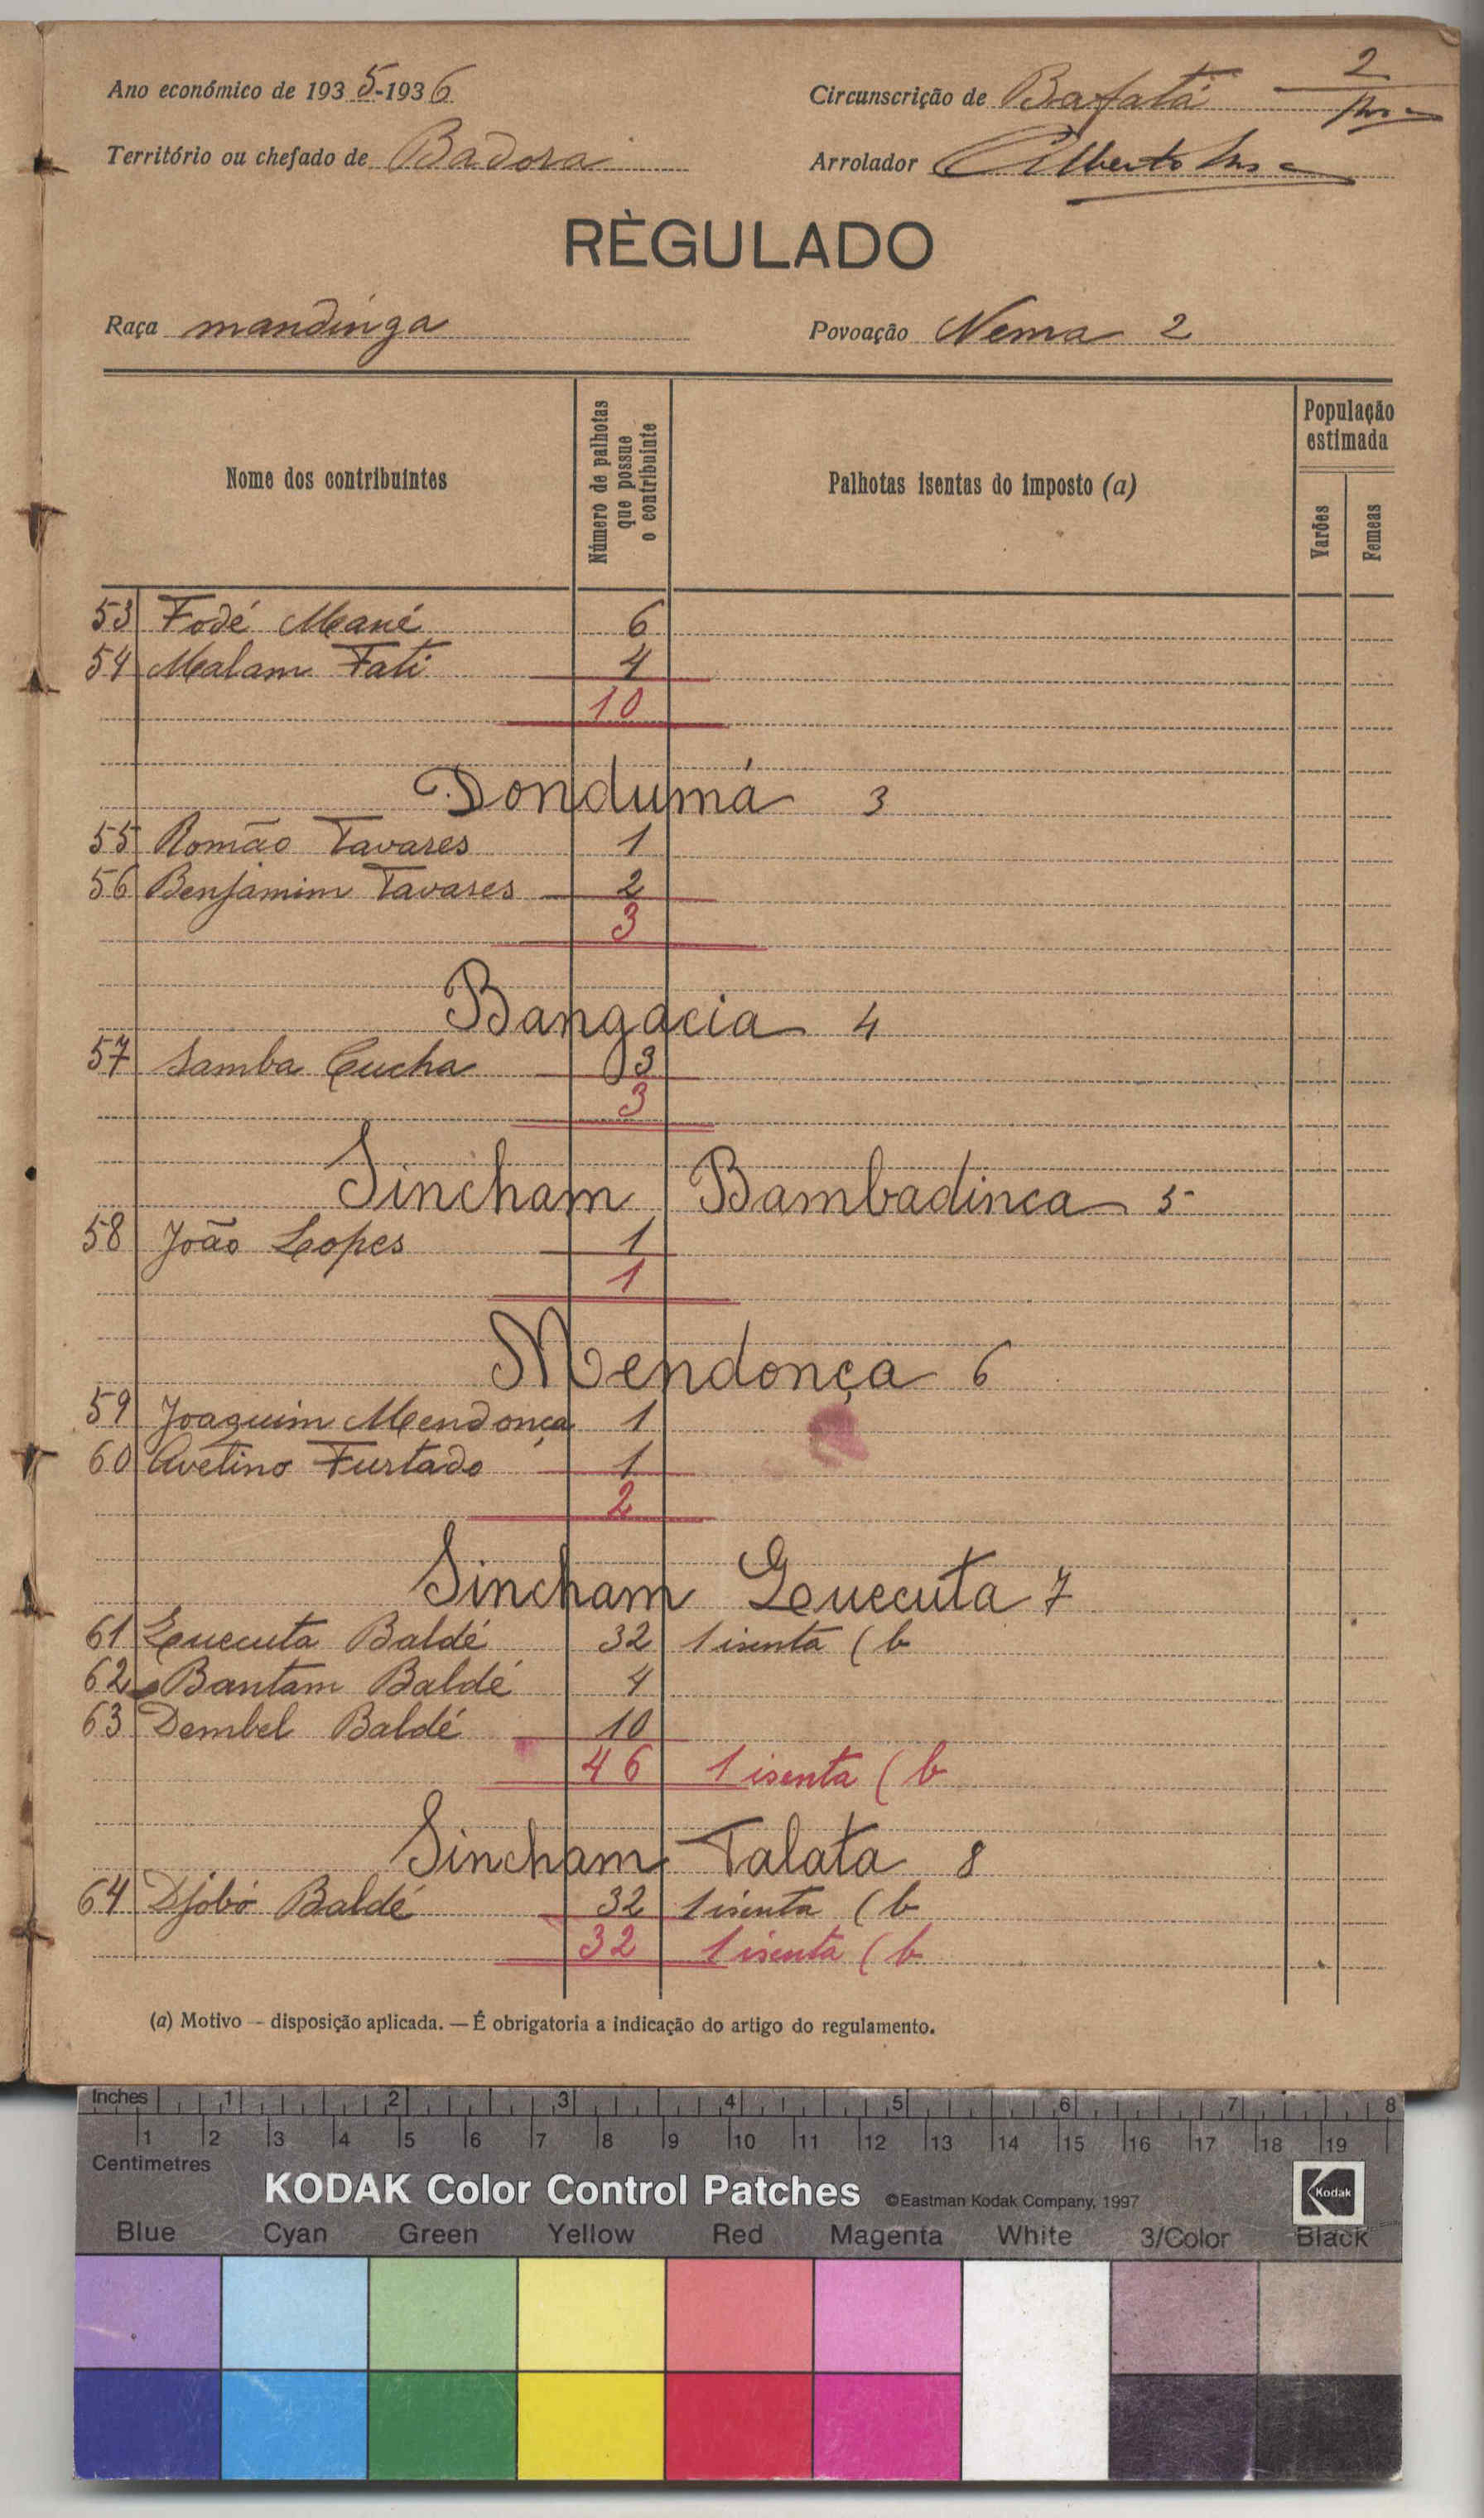 Ano económico de 1935-1936
Circunscrição de Bafatá 2
Território ou chefado de Badora
Arrolador Alberto
RÈGULADO
Raça mandinga
Povoação Nema 2
Nome dos contribuintes
Número de palhotas que possue o contribuinte
Palhotas isentas do imposto (a)
População estimada
Varões
Femeas
53 Fodé Mané 6
54 Malam Fati 4
10
Dondumá 3
55 Romão Tavares 1
56 Benjamim Tavares 2
3
Bangacia 4
57 Samba Cucha 3
3
Sincham Bambadinca 5
58 João Lopes 1
1
Mendonça 6
59 Joaquim Mendonça 1
60 Avelino Furtado 1
2
Sincham Queucuta 7
61 Queucuta Baldé 32 1 isenta (b
62 Bantam Baldé 4
63 Dembel Baldé 10
46 1 isenta (b
Sincham Talata 8
64 Djobó Baldé 32 1 isenta (b
32 1 isenta (b
(a) Motivo — disposição aplicada. — É obrigatoria a indicação do artigo do regulamento.
Inches 1 2 3 4 5 6 7 8
1 2 3 4 5 6 7 8 9 10 11 12 13 14 15 16 17 18 19
Centimetres
KODAK Color Control Patches ©Eastman Kodak Company, 1997 Kodak
Blue Cyan Green Yellow Red Magenta White 3/Color Black